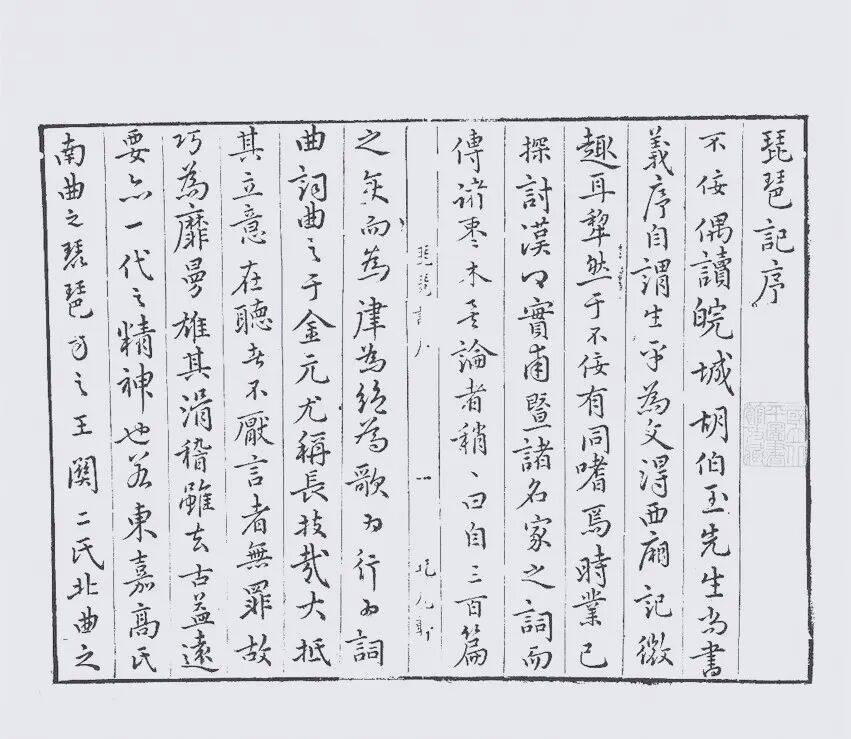 琵琶記序
不佞偶讀皖城胡伯玉先生尚書
義序自謂生平為文得西廂記微
趣耳犂然于不佞有同嗜焉時業已
探討漢卿實甫暨諸名家之詞而
傳諸棗木論者稍、曰自三百篇
琵琶記序 一 玩虎軒
之而為律為絕為歌為行為詞
曲詞曲之于金元尤稱長技哉大抵
其立意在聽者不厭言者無罪故
巧為靡曼雄其滑稽雖去古益遠
要亦一代之精神也若東嘉高氏
南曲之琵琶方之王關二氏北曲之